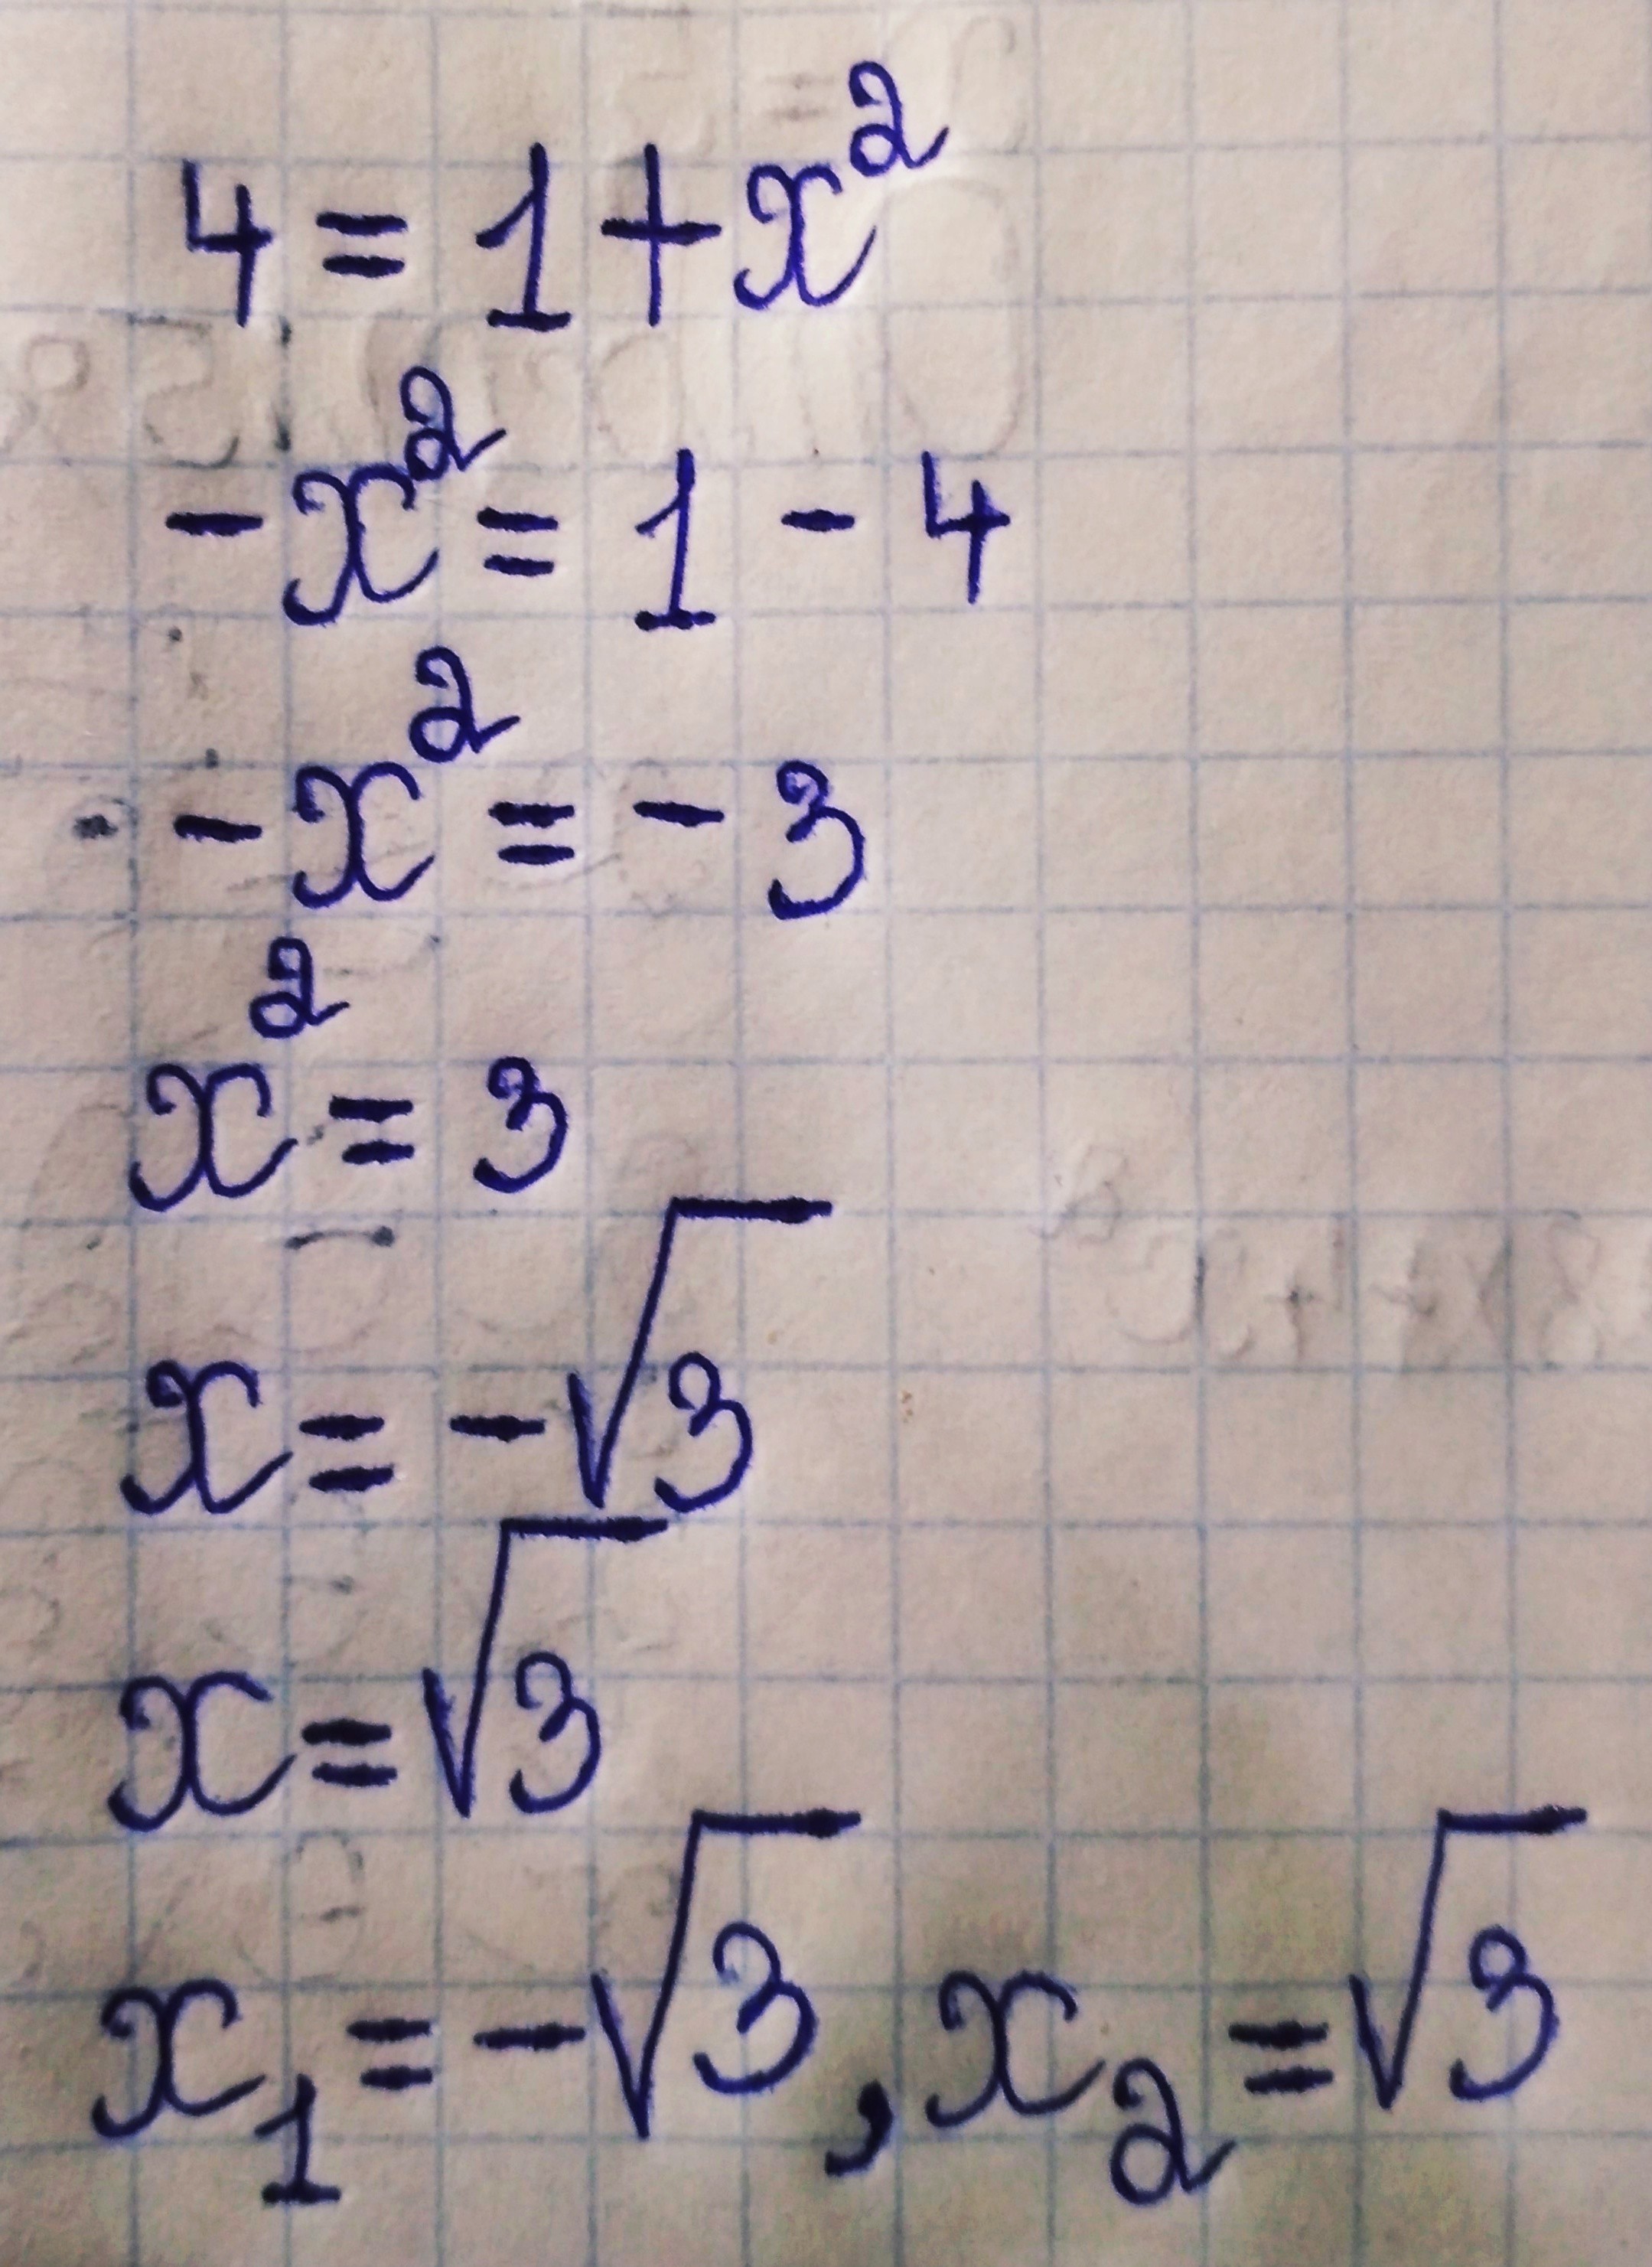 4 = 1 + x²
- x² = 1 - 4
- x² = - 3
x² = 3
x = - √3
x = √3
x₁ = - √3 , x₂ = √3